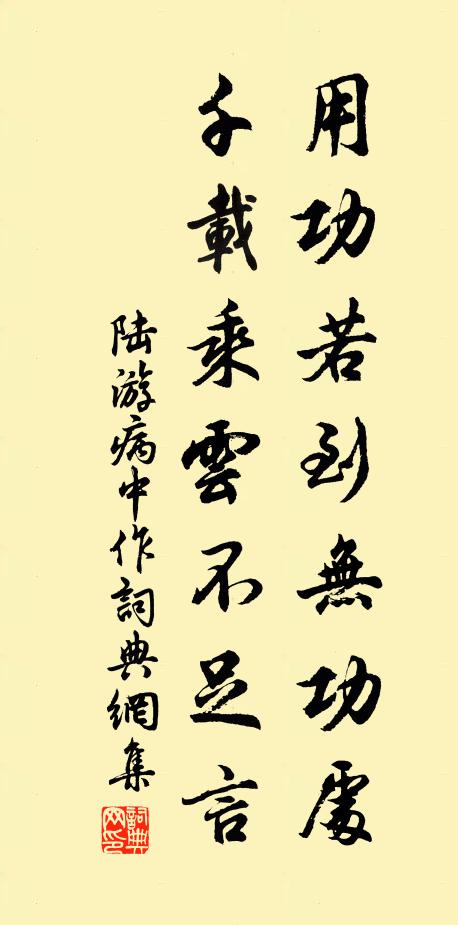 用功若到無功處
千載乘雲不足言
陸游病中作詞典網集
詞典
网印